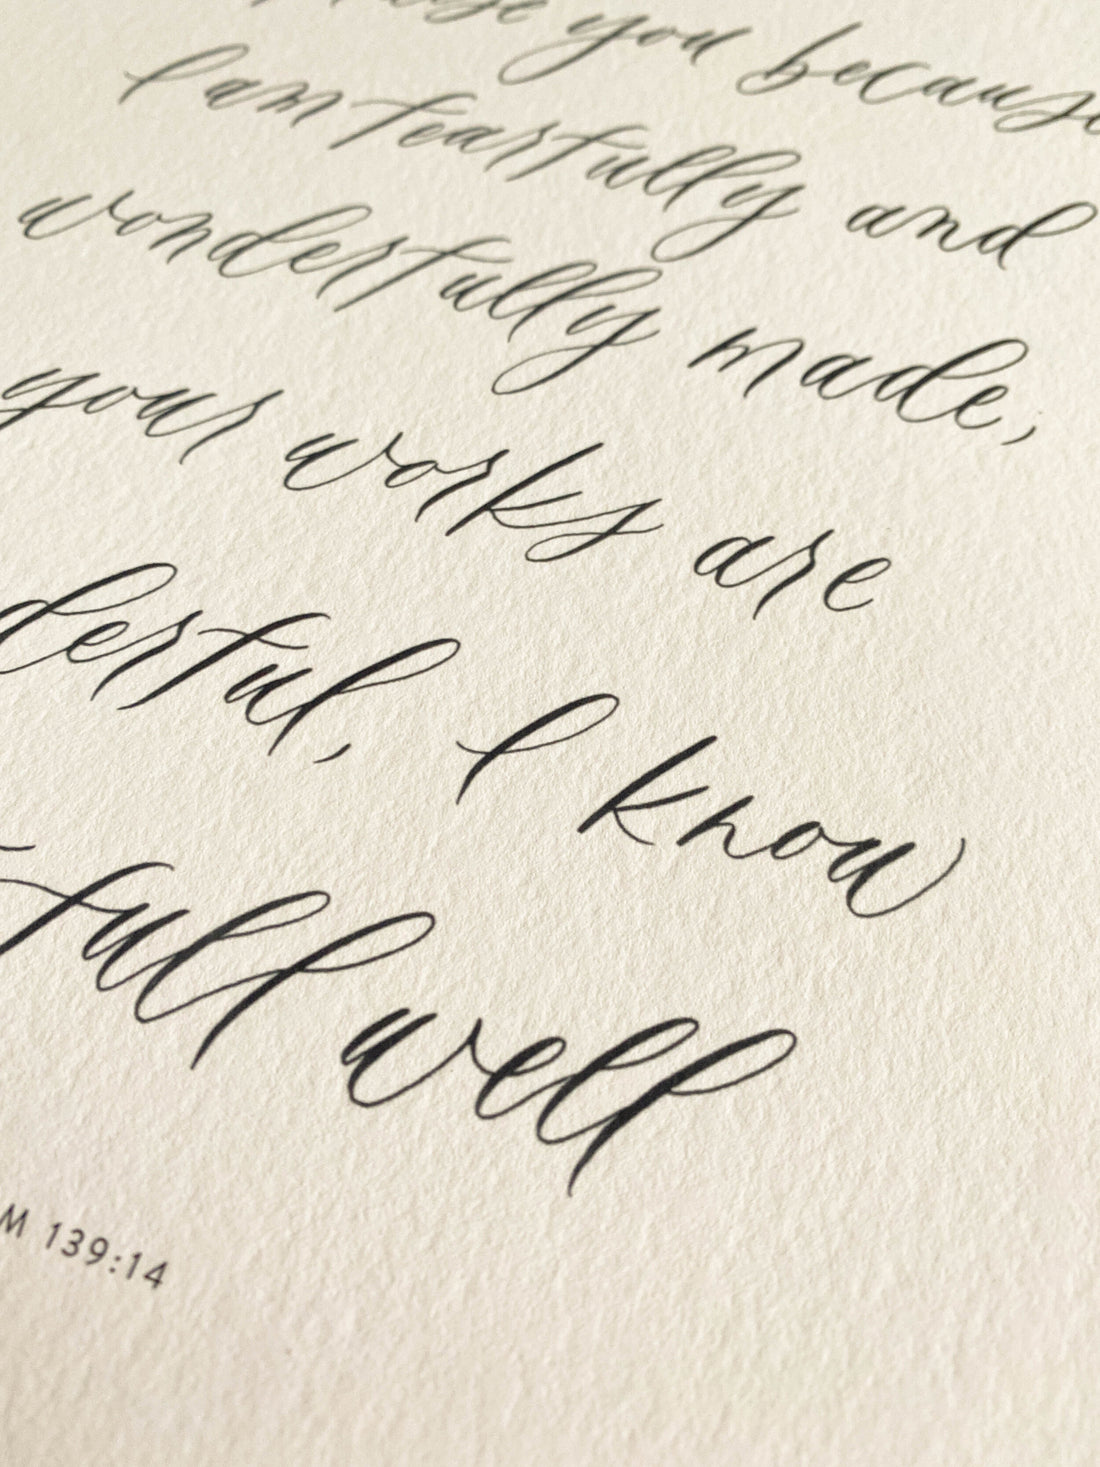 you because
I am fearfully and
wonderfully made;
your works are
derful, I know
full well
M 139:14